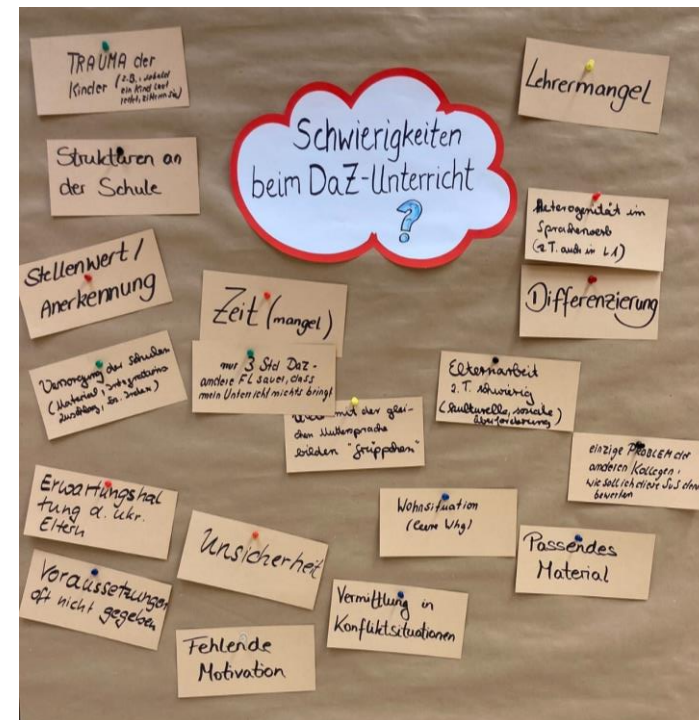 Schwierigkeiten
beim DaZ-Unterricht
?
TRAUMA der
Kinder (z.B., sobald
ein Kind laut
redet, zittern sie)
Lehrermangel
Strukturen an
der Schule
Heterogenität im
Spracherwerb
(z.T. auch in L1)
Stellenwert /
Anerkennung
Zeit (mangel)
Differenzierung
Versorgung der Schulen
(Material, Integrations
zuschlag,
nur 3 Std DaZ-
andere FL sauer, dass
mein Unterricht nichts bringt
Elternarbeit
z.T. schwierig
(kulturelle, soziale
Überforderung)
mit der glei-
chen Muttersprache
bilden "Grüppchen"
einzige PROBLEM der
anderen Kollegen:
wie soll ich diese SuS denn
bewerten
Erwartungshal
tung d. ukr.
Eltern
Wohnsituation
(leere Whg)
Unsicherheit
Passendes
Material
Voraussetzungen
oft nicht gegeben
Vermittlung in
Konfliktsituationen
Fehlende
Motivation